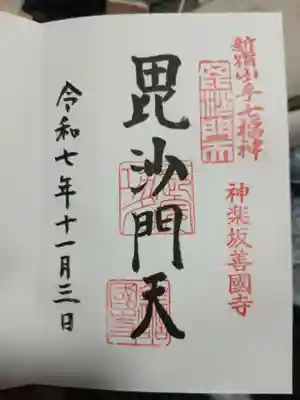 新宿山ノ手七福神
神楽坂善國寺
毘沙門天
令和七年十一月三日